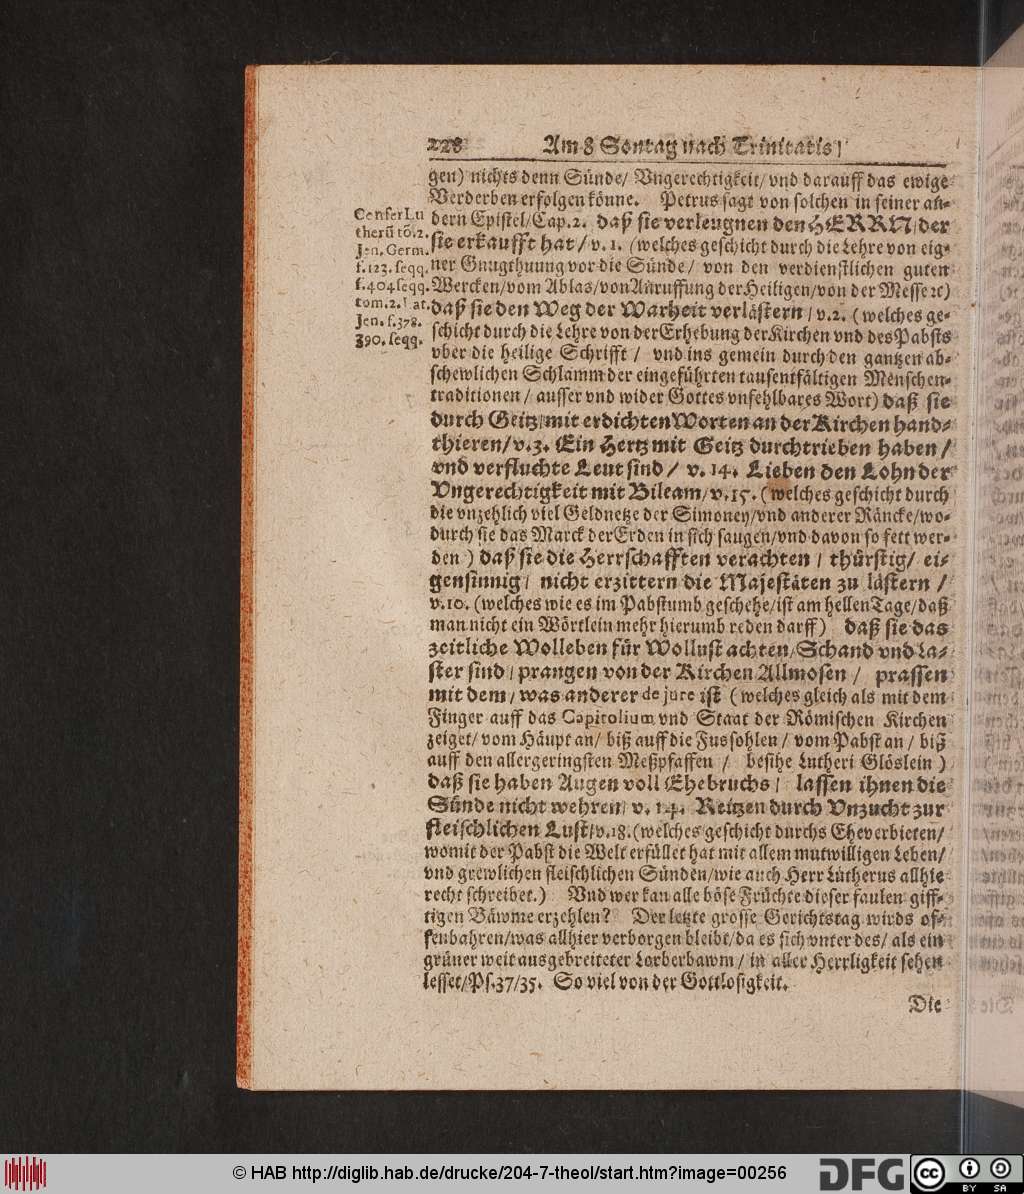 228 Am 8 Sontag nach Trinitatis/
gen) nichts denn Sünde/ Vngerechtigkeit/ vnd darauff das ewige
Verderben erfolgen könne. Petrus sagt von solchen in seiner an-
dern Epistel/Cap.2. daß sie verleugnen den HERRN/der
sie erkaufft hat/ v.1. (welches geschicht durch die Lehre von eig-
ner Gnugthuung vor die Sünde/ von den verdienstlichen guten
Wercken/vom Ablas/von Anruffung der Heiligen/von der Messe ꝛc)
daß sie den Weg der Warheit verlästern/ v.2. (welches ge-
schicht durch die Lehre von der Erhebung der Kirchen vnd des Pabsts
vber die heilige Schrifft/ vnd ins gemein durch den gantzen ab-
schewlichen Schlamm der eingeführten tausentfältigen Menschen-
traditionen/ ausser vnd wider Gottes vnfehlbares Wort) daß sie
durch Geitz/mit erdichten Worten an der Kirchen hand-
thieren/v.3. Ein Hertz mit Geitz durchtrieben haben/
vnd verfluchte Leut sind/ v.14. Lieben den Lohn der
Vngerechtigkeit mit Bileam/v.15. (welches geschicht durch
die vnzehlich viel Geldnetze der Simoney/vnd anderer Räncke/wo-
durch sie das Marck der Erden in sich saugen/vnd davon so fett wer-
den) daß sie die Herrschafften verachten/ thürstig/ ei-
gensinnig/ nicht erzittern die Majestäten zu lästern/
v.10. (welches wie es im Pabstumb geschehe/ist am hellen Tage/daß
man nicht ein Wörtlein mehr hierumb reden darff) daß sie das
zeitliche Wolleben für Wollust achten/Schand vnd La-
ster sind/ prangen von der Kirchen Allmosen/ prassen
mit dem/ was anderer de jure ist (welches gleich als mit dem
Finger auff das Capitolium vnd Staat der Römischen Kirchen
zeiget/ vom Häupt an/ biß auff die Fussohlen/ vom Pabst an/ biß
auff den allergeringsten Meßpfaffen/ besihe Lutheri Glöslein)
daß sie haben Augen voll Ehebruchs/ lassen ihnen die
Sünde nicht wehren/ v.14. Reitzen durch Vnzucht zur
fleischlichen Lust/v.18.(welches geschicht durchs Eheverbieten/
womit der Pabst die Welt erfüllet hat mit allem mutwilligen Leben/
vnd grewlichen fleischlichen Sünden/wie auch Herr Lutherus allhie
recht schreibet.) Vnd wer kan alle böse Früchte dieser faulen giff-
tigen Bäwme erzehlen? Der letzte grosse Gerichtstag wirds of-
fenbahren/was allhier verborgen bleibt/da es sich vnter des/ als ein
grüner weit ausgebreiteter Lorberbawm/ in aller Herrligkeit sehen
lesset/Ps.37/35. So viel von der Gottlosigkeit.
Die
Confer Lu
therũ tõ.2.
Jen. Germ.
f.123. seqq.
f.404 seqq.
tom.2. Lat.
Jen. f.378.
390. seqq.
© HAB http://diglib.hab.de/drucke/204-7-theol/start.htm?image=00256
DFG
cc BY SA